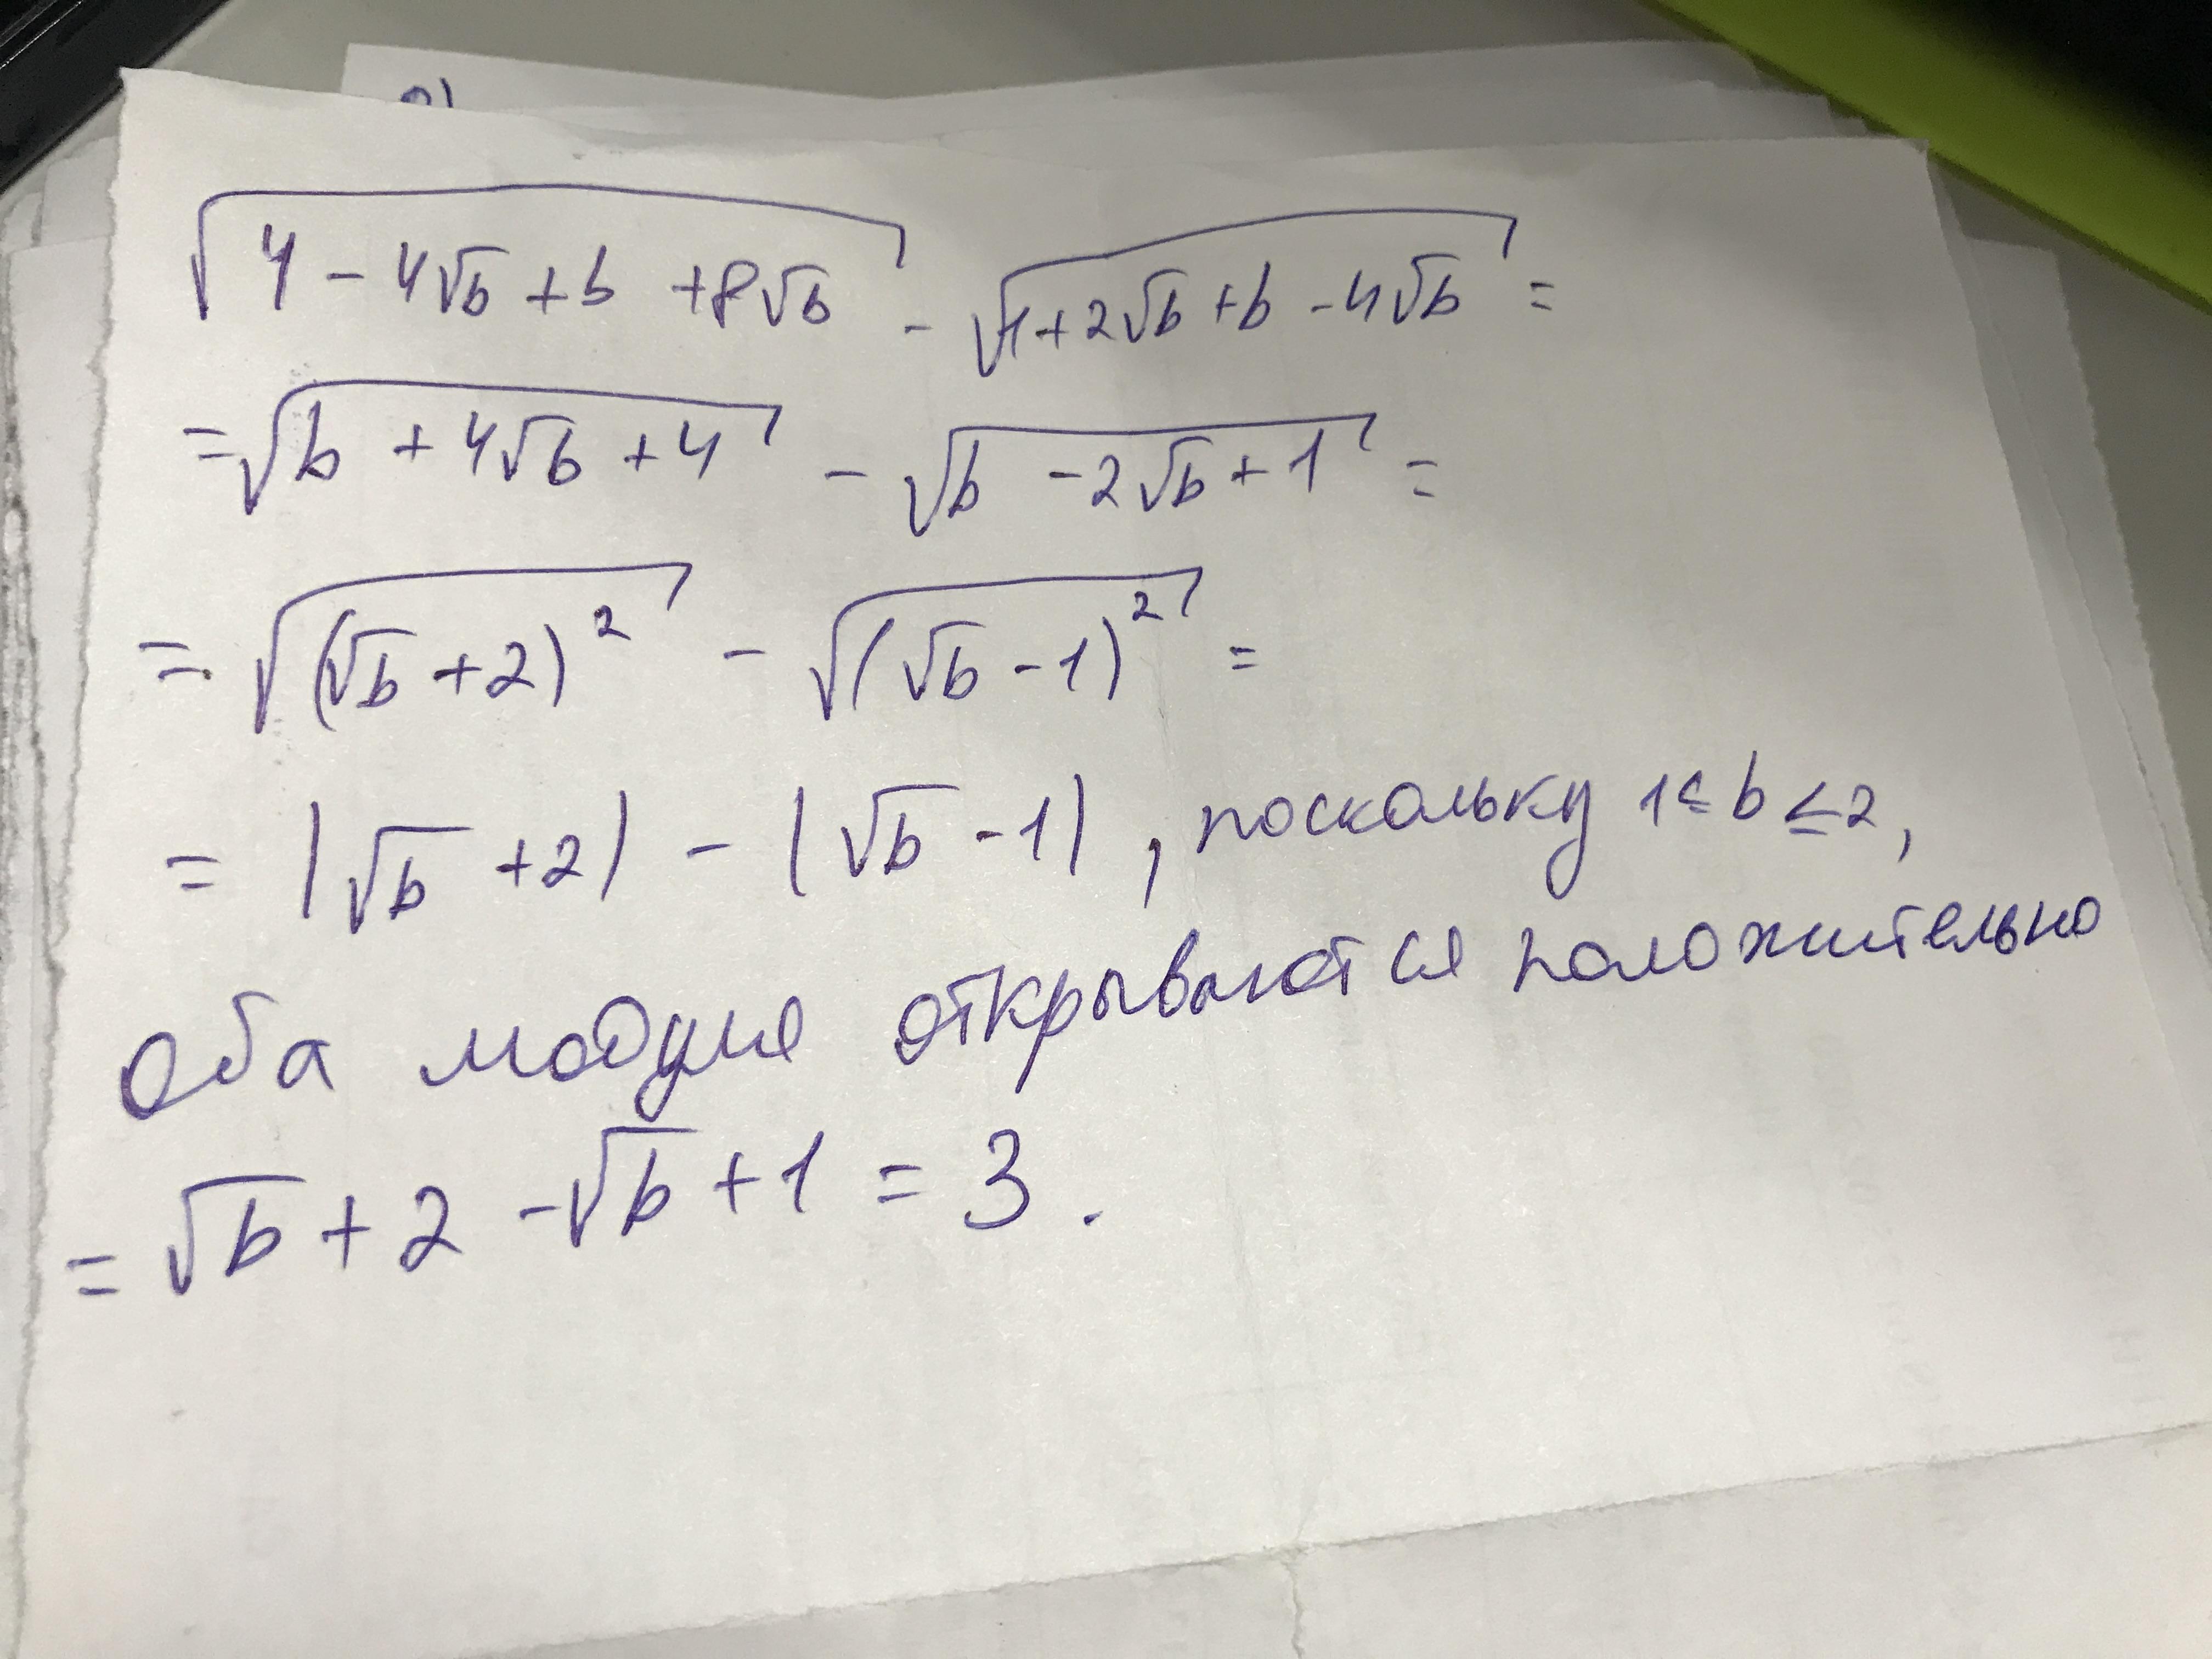 √(4 - 4√b + b + 8√b) - √(1 + 2√b + b - 4√b) =
= √(b + 4√b + 4) - √(b - 2√b + 1) =
= √((√b + 2)²) - √((√b - 1)²) =
= |√b + 2| - |√b - 1|, поскольку 1 ≤ b ≤ 2,
оба модуля открываются положительно
= √b + 2 - √b + 1 = 3.